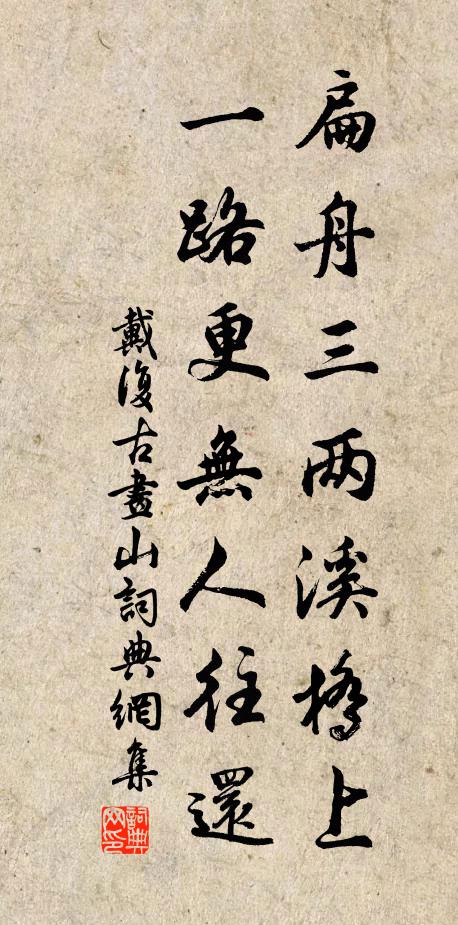 扁舟三两溪橋上
一路更無人往還
戴復古畫山詞典網集
詞典网印